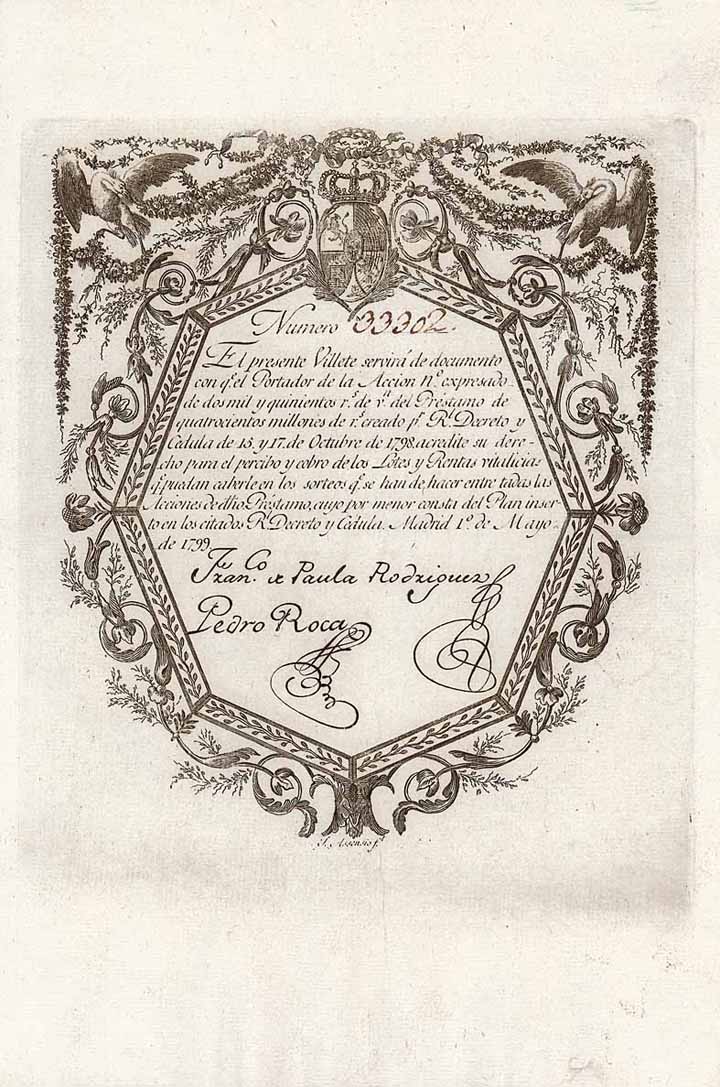 Numero 33302.
El presente Villete servirá de documento
con q.e el Portador de la Accion n.º expresado
de dos mil y quinientos r.s de v.n del Préstamo de
quatrocientos millones de r.s creado p.r R.l Decreto y
Cedula de 15. y 17. de Octubre de 1798. acredite su dere-
cho para el percibo y cobro de los Lotes y Rentas vitalicias
q.e puedan caberle en los sorteos q.e se han de hacer entre todas las
Acciones de dho. Préstamo, cuyo por menor consta del Plan inser-
to en los citados R.l Decreto y Cedula. Madrid 1.º de Mayo
de 1799.
Fran.co de Paula Rodriguez
Pedro Roca
J. Assensio f.